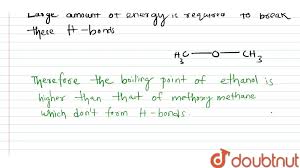 Large amount of energy is required to break
these H-bonds
H₃C—O—CH₃
Therefore the boiling point of ethanol is
higher than that of methoxy methane
which don't form H-bonds.
doubtnut